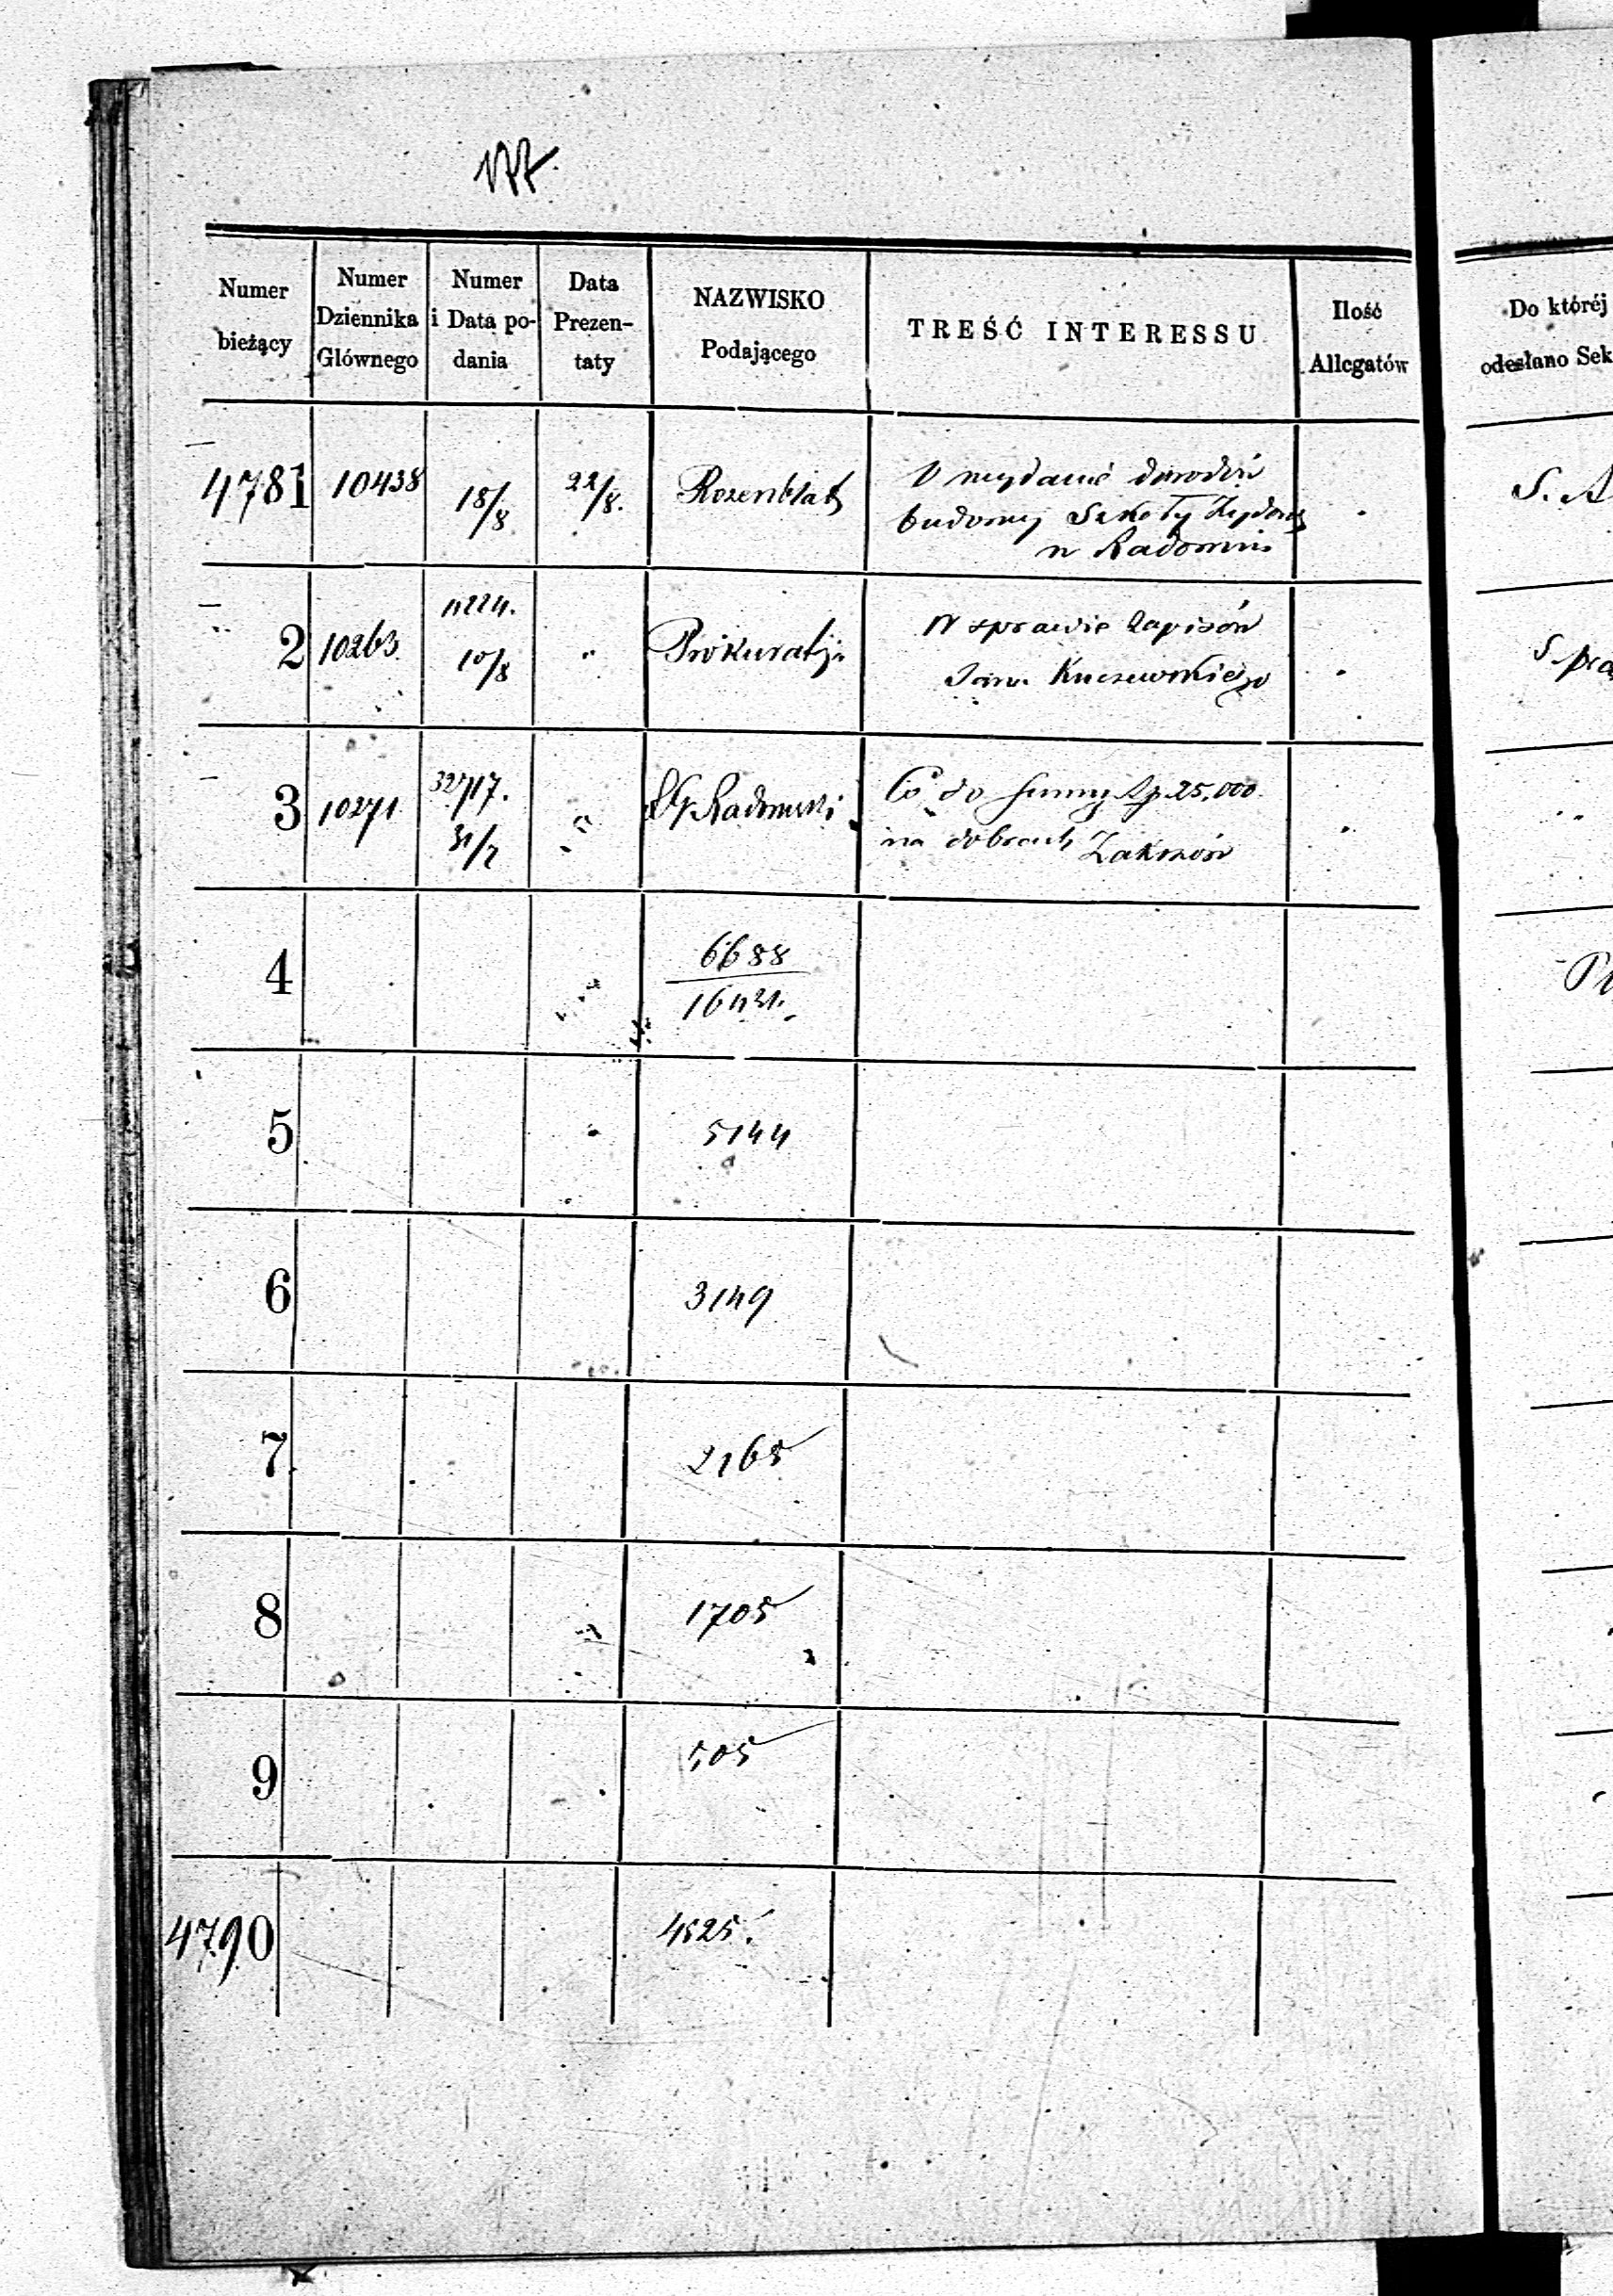 177.
Numer bieżący
Numer Dziennika Głównego
Numer i Data podania
Data Prezentaty
NAZWISKO Podającego
TREŚĆ INTERESSU
Ilość Allegatów
Do któréj
odesłano Sek
4781 10438 18/8 22/8. Rozenblat
O wydanie
budowy Szkoły
w Radomiu
S. A
2 10263 11224. 10/8 " Prokuratya
W sprawie zapisów
Jana
S. pra
3 10271 32717. 31/7 " Radomski
Co do summy Zp. 25,000
na dobrach Zakrzów
4 6688
Pr
5 5144
6 3149
7 2165
8 1705
9 505
4790 4525.